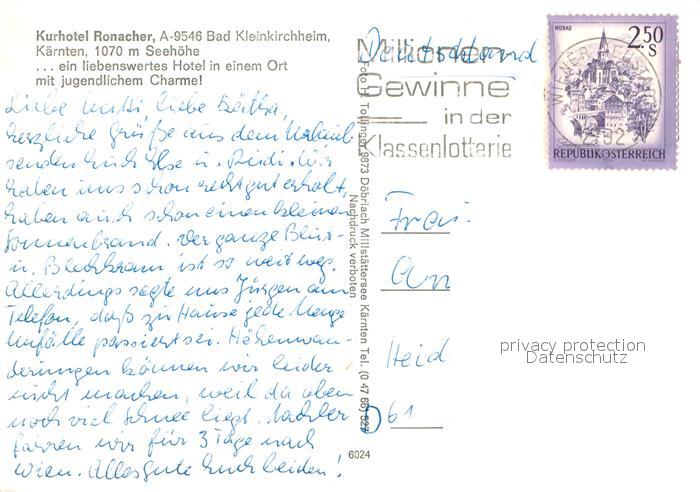 Kurhotel Ronacher, A-9546 Bad Kleinkirchheim,
Kärnten, 1070 m Seehöhe
... ein liebenswertes Hotel in einem Ort
mit jugendlichem Charme!
Liebe Mutti, liebe Bertha,
herzliche Grüße aus dem Urlaub
senden Euch Else u. Rudi. Wir
haben uns schon recht gut erholt,
haben auch schon einen kleinen
Sonnenbrand. Der ganze
u. ist so weit weg.
Allerdings sagte uns Jürgen am
Telefon, daß zu Hause jede Menge
Unfälle passiert sei. Höhenwan-
derungen können wir leider
nicht machen, weil da oben
noch viel Schnee liegt. Nachher
fahren wir für 3 Tage nach
Wien. Alles gute Euch beiden!
Deutschland
Millionen
Gewinne
in der
Klassenlotterie
MURAU
2.50
S
WIENER
REPUBLIK ÖSTERREICH
9873 Döbriach Millstättersee Kärnten Tel. (0 47 66) 527
Nachdruck verboten
Frau
An
Heid
D 61
6024
privacy protection
Datenschutz